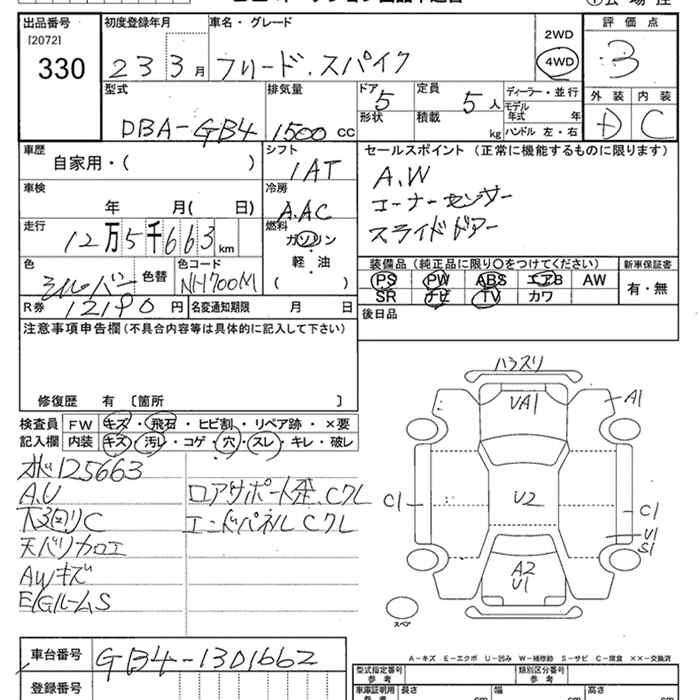 出品番号 初度登録年月 車名・グレード 評価点
[2072]
330
23 3月 フリード.スパイク 2WD
4WD
3
型式 排気量 ドア 定員 ディーラー・並行 外装 内装
DBA-GB4 1500 CC 5 5人 モデル年式 年
形状 積載 kg ハンドル 左・右 D C
車歴 シフト セールスポイント (正常に機能するものに限ります)
自家用・( ) IAT A.W
車検 冷房 コーナーセンサー
年 月( 日) A.AC スライドドアー
走行 燃料
12万5千663km ガソリン
軽・油
( )
色 色替 色コード 装備品(純正品に限り〇をつけてください) 新車保証書
シルバー NH700M PS PW ABS エアB AW 有・無
SR ナビ TV カワ
R券 12190円 名変通知期限 月 日 後日品
注意事項申告欄(不具合内容等は具体的に記入して下さい)
修復歴 有〔箇所 〕
検査員 FW キズ・飛石・ヒビ割・リペア跡・×要
記入欄 内装 キズ・汚レ・コゲ・穴・スレ・キレ・破レ
125663
A.U ロアサポート歪.Cクレ
下回りC エンドパネルCクレ
天バリカロエ
AWキズ
E/GルームS
ハランスリ
UA1 A1
C1 U2 C1
U1
S1
A2
U1
スペア
A-キズ E-エクボ U-凹み W-補修跡 S-サビ C-腐食 ××-交換済
車台番号 GB4-1301662
登録番号
型式指定番号 参考 類別区分番号 参考
車庫証明用 参考 長さ cm 幅 cm 高さ cm